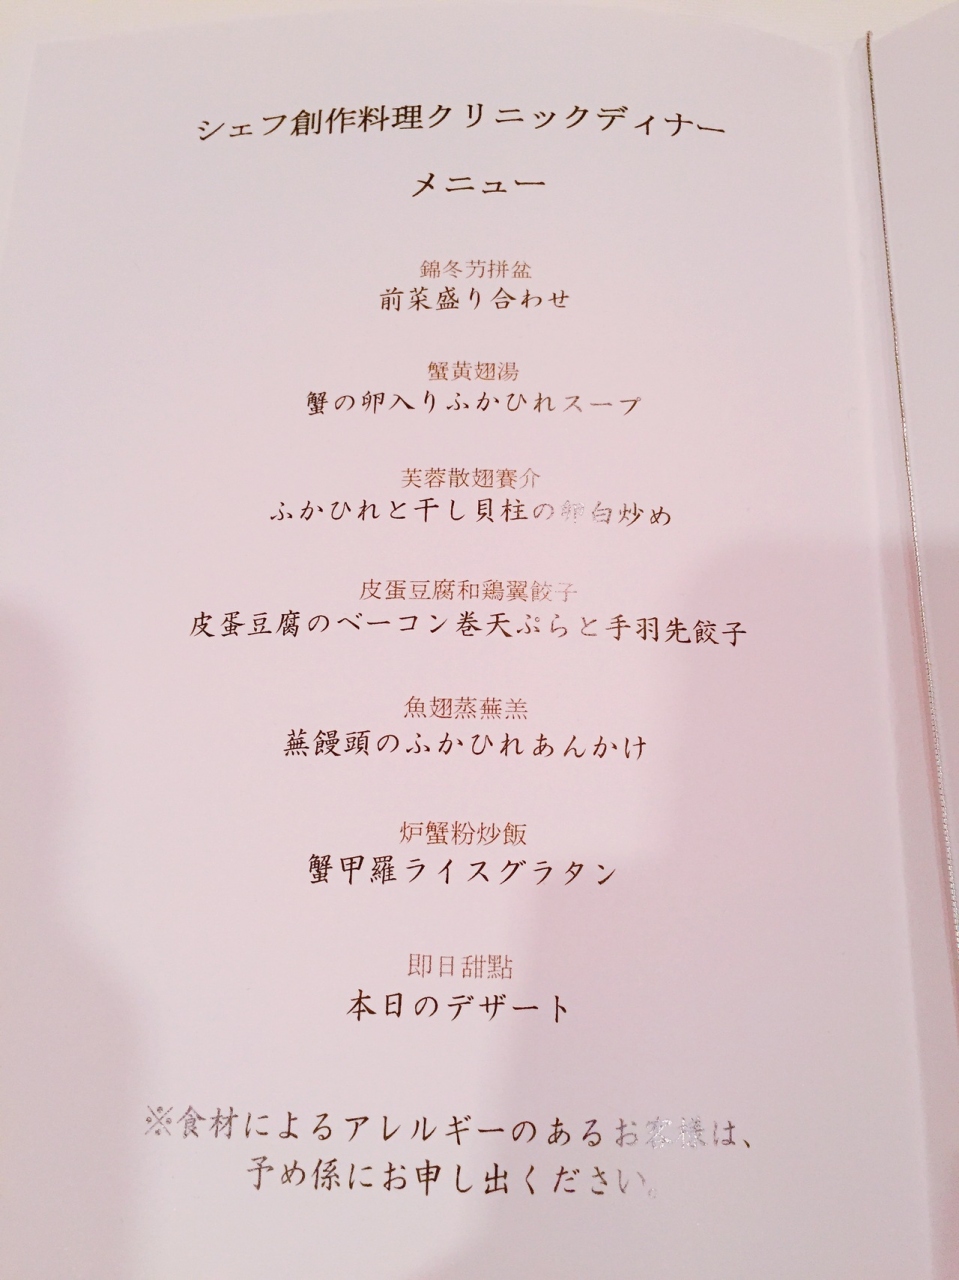 シェフ創作料理クリニックディナー
メニュー
錦冬艻拼盆
前菜盛り合わせ
蟹黃翅湯
蟹の卵入りふかひれスープ
芙蓉散翅賽介
ふかひれと干し貝柱の卵白炒め
皮蛋豆腐和鶏翼餃子
皮蛋豆腐のベーコン巻天ぷらと手羽先餃子
魚翅蒸蕪羔
蕪饅頭のふかひれあんかけ
炉蟹粉炒飯
蟹甲羅ライスグラタン
即日甜點
本日のデザート
※食材によるアレルギーのあるお客様は、
予め係にお申し出ください。